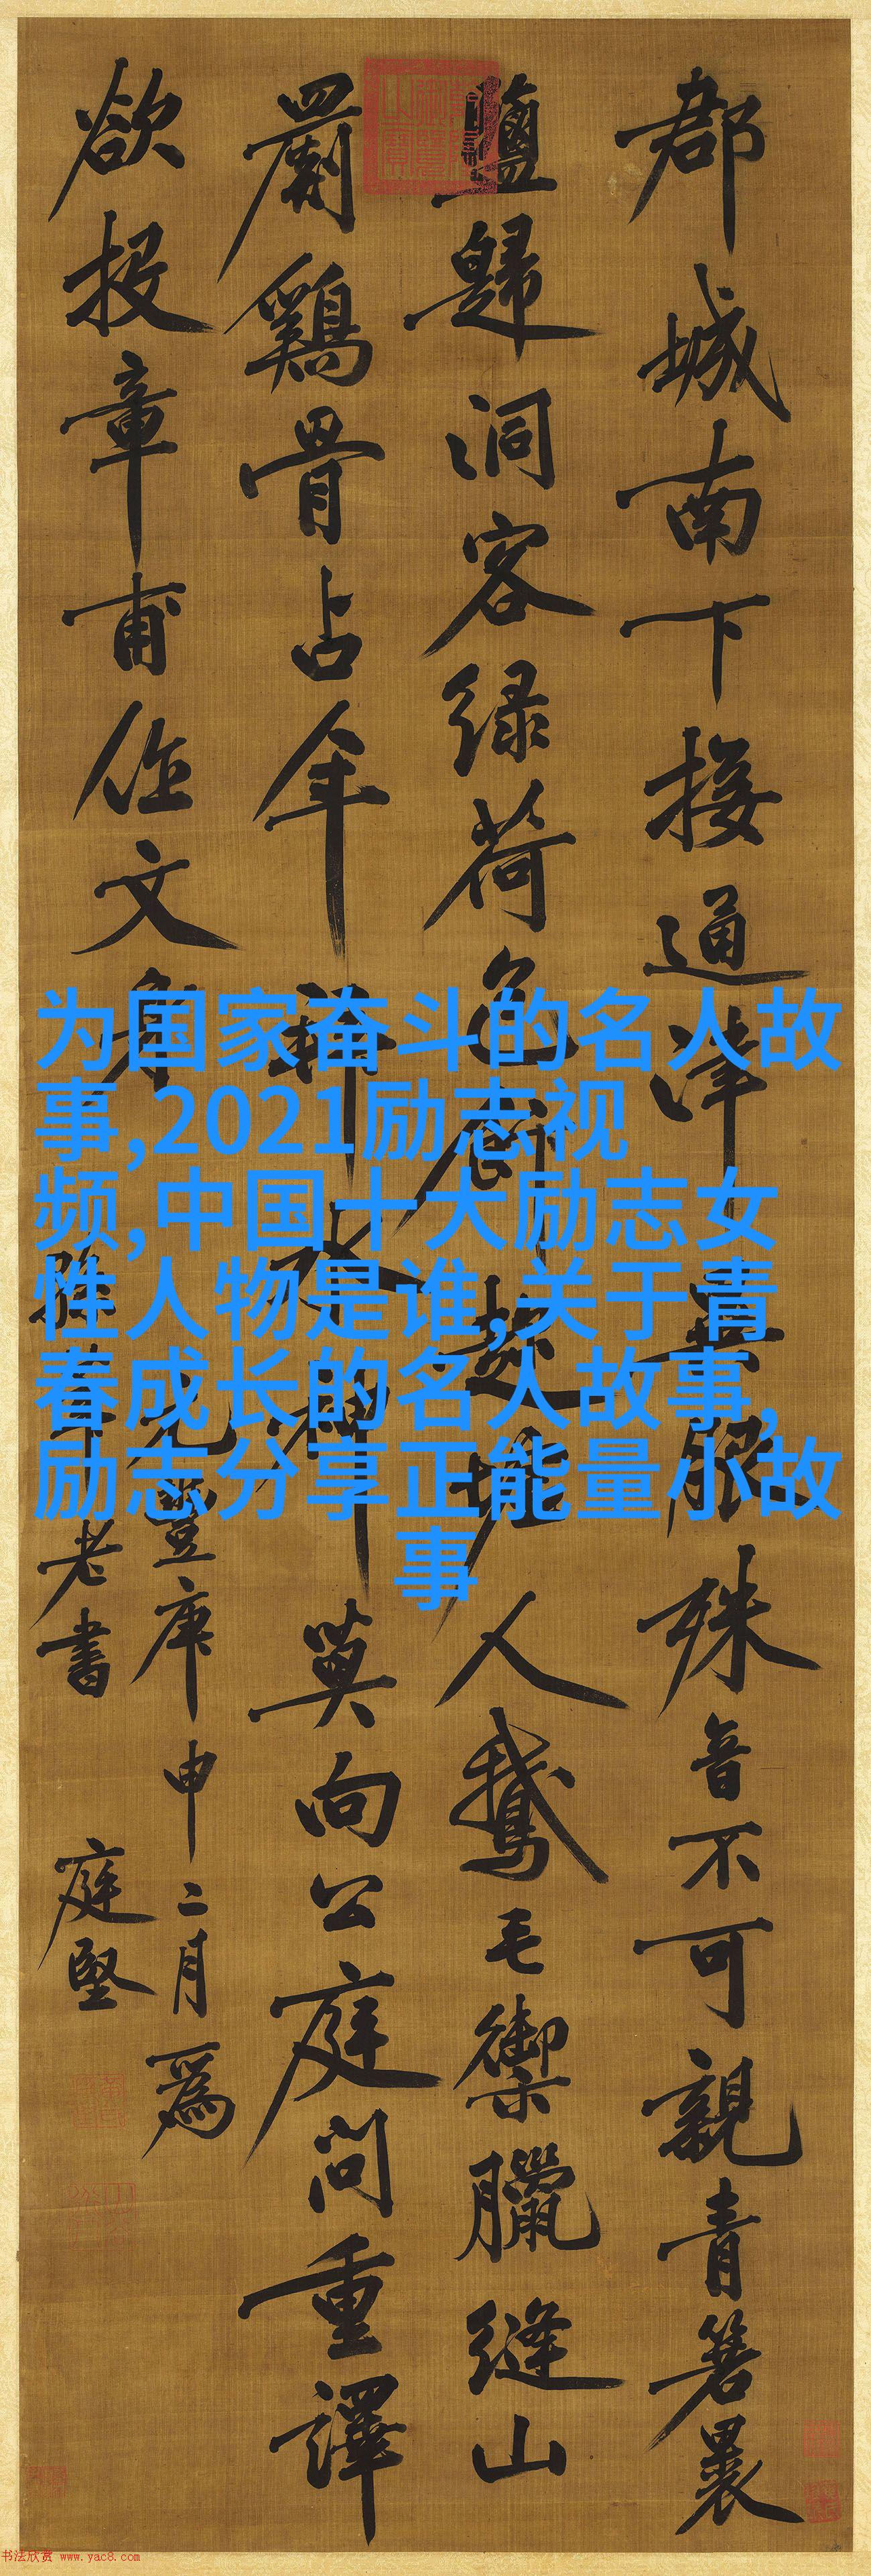 郡城南下接通津異服殊音不可親青箬裹
鹽歸洞客綠荷包飯趁墟人鵝毛禦臘縫山
罽鷄骨占年拜水神莫向公庭問重譯
欲投章甫作文身
元豐庚申二月為
老書
庭堅
为国家奋斗的名人故
事,2021励志视
频,中国十大励志女
性人物是谁,关于青
春成长的名人故事,
励志分享正能量小故
事
书法欣赏 www.yac8.com